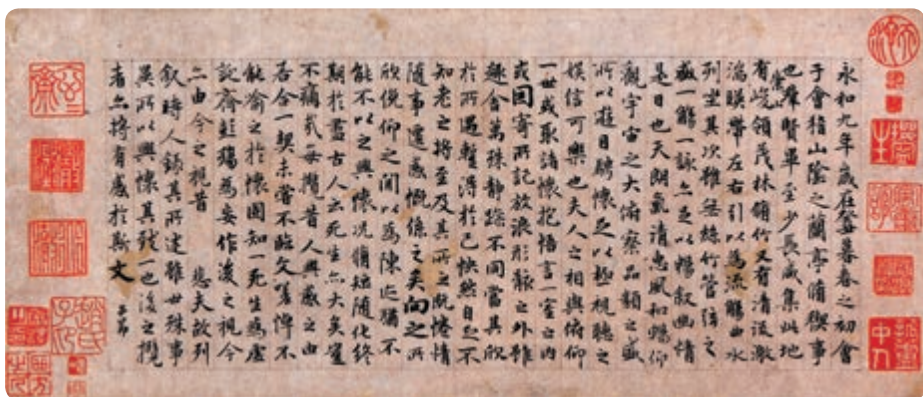 永和九年歲在癸丑暮春之初會
于會稽山陰之蘭亭脩稧事
也羣賢畢至少長咸集此地
有崇山峻領茂林脩竹又有清流激
湍暎帶左右引以為流觴曲水
列坐其次雖無絲竹管弦之
盛一觴一詠亦足以暢敘幽情
是日也天朗氣清惠風和暢仰
觀宇宙之大俯察品類之盛
所以遊目騁懷足以極視聽之
娛信可樂也夫人之相與俯仰
一世或取諸懷抱悟言一室之內
或因寄所託放浪形骸之外雖
趣舍萬殊靜躁不同當其欣
於所遇暫得於己快然自足不
知老之將至及其所之既惓情
隨事遷感慨係之矣向之所
欣俛仰之間以為陳迹猶不
能不以之興懷況脩短隨化終
期於盡古人云死生亦大矣豈
不痛哉每攬昔人興感之由
若合一契未嘗不臨文嗟悼不
能喻之於懷固知一死生為虛
誕齊彭殤為妄作後之視今
亦由今之視昔 悲夫故列
敘時人錄其所述雖世殊事
異所以興懷其致一也後之攬
者亦將有感於斯文 子昂